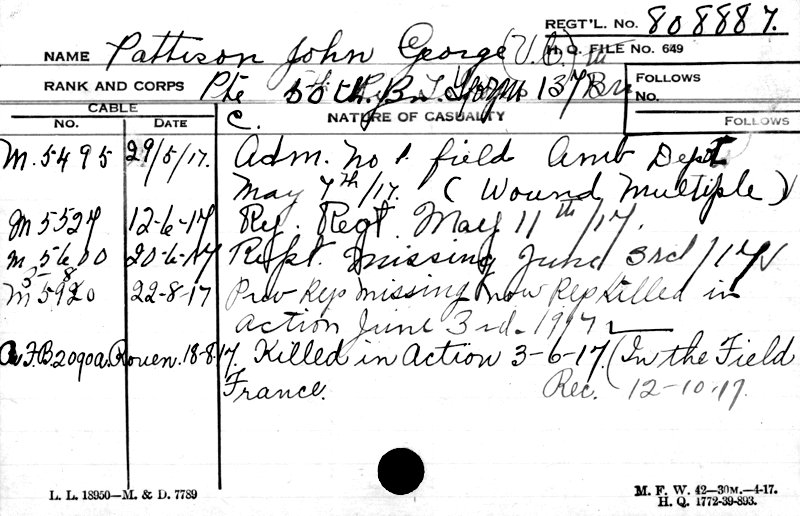 REGT'L. NO. 808887.
NAME Pattison John George (V.C.)
H.Q. FILE NO. 649
RANK AND CORPS Pte 50th. Bn. 137th Bn
FOLLOWS
NO.
CABLE
NO. DATE
C. NATURE OF CASUALTY
FOLLOWS
M. 5495 29/5/17. Adm. No 1. field Amb Dept
May 7th/17. (Wound Multiple)
M 5527 12-6-17 Rej. Regt. May 11th/17.
M 5600 20-6-17 Rept. missing June 3rd/17
M 5920 22-8-17 Prev Rep missing now Rep Killed in
action June 3rd. 1917
A.F.B.2090a. Rouen. 18-8-17. Killed in Action 3-6-17. (In the Field
France. Rec. 12-10-17.
L. L. 18950—M. & D. 7789
M. F. W. 42—30M.—4-17.
H. Q. 1772-39-893.